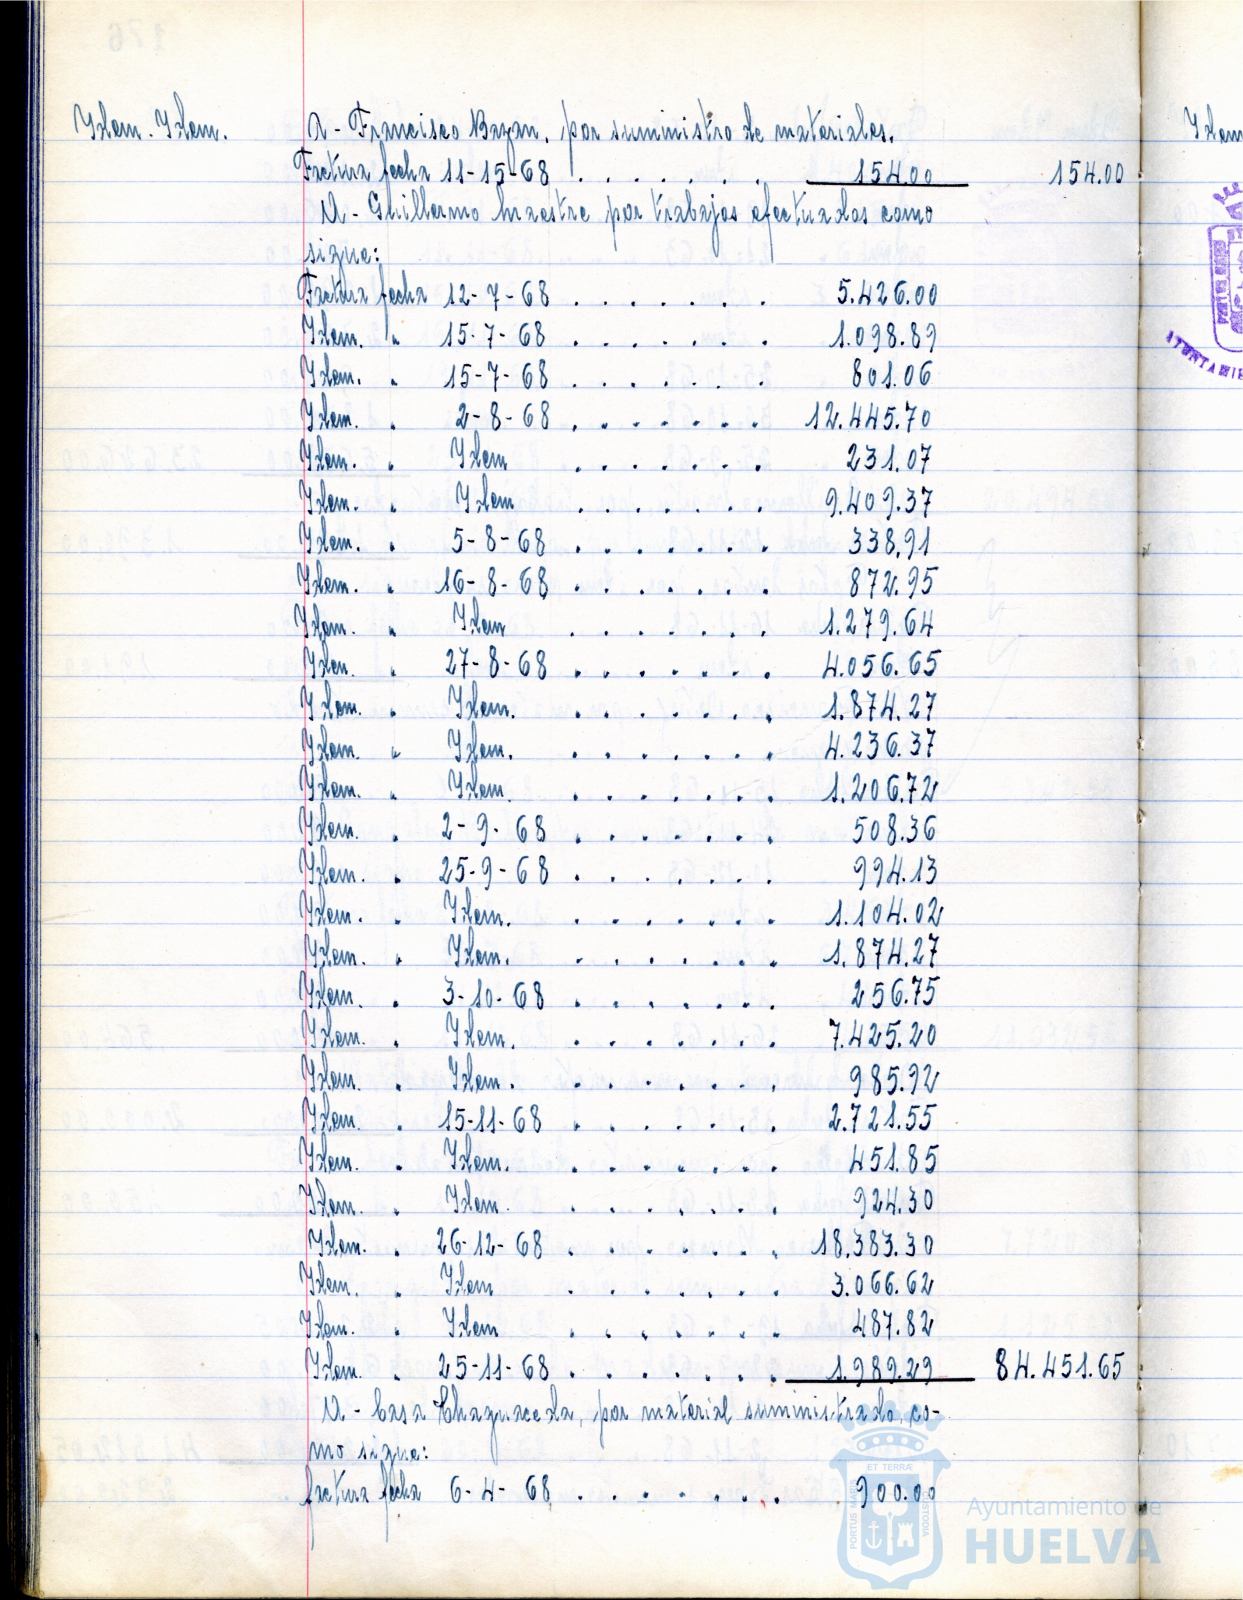 Idem. Idem. A- Francisco Bazan, por suministro de materiales.
Factura fecha 11-15-68 . . . . . . . 154.00 154.00
A- Guillermo Maestre por trabajos efectuados como
sigue:
Factura fecha 12-7-68 . . . . . . . 5.426.00
Idem. " 15-7-68 . . . . . . . 1.098.89
Idem. " 15-7-68 . . . . . . . 801.06
Idem. " 2-8-68 . . . . . . . 12.445.70
Idem. " Idem . . . . . . . 231.07
Idem. " Idem . . . . . . . 9.409.37
Idem. " 5-8-68 . . . . . . . 338,91
Idem. " 16-8-68 . . . . . . . 872.95
Idem. " Idem . . . . . . . 1.279.64
Idem. " 27-8-68 . . . . . . . 4.056.65
Idem. " Idem. . . . . . . . 1.874.27
Idem. " Idem. . . . . . . . 4.236.37
Idem. " Idem. . . . . . . . 1.206.72
Idem. " 2-9-68 . . . . . . . 508.36
Idem. " 25-9-68 . . . . . . . 994.13
Idem. " Idem. . . . . . . . 1.104.02
Idem. " Idem. . . . . . . . 1.874.27
Idem. " 3-10-68 . . . . . . . 256.75
Idem. " Idem. . . . . . . . 7.425.20
Idem. " Idem. . . . . . . . 985.92
Idem. " 15-11-68 . . . . . . . 2.721.55
Idem. " Idem. . . . . . . . 451.85
Idem. " Idem. . . . . . . . 924.30
Idem. " 26-12-68 . . . . . . . 18.383.30
Idem. " Idem . . . . . . . 3.066.62
Idem. " Idem . . . . . . . 487.82
Idem. " 25-11-68 . . . . . . . 1.989.29 84.451.65
A- Casa Chaguaceda, por material suministrado, co-
mo sigue:
factura fecha 6-4-68 . . . . . . . 900.00
Idem
PORTUS MARIS
ET TERRÆ
CUSTODIA
Ayuntamiento de
HUELVA